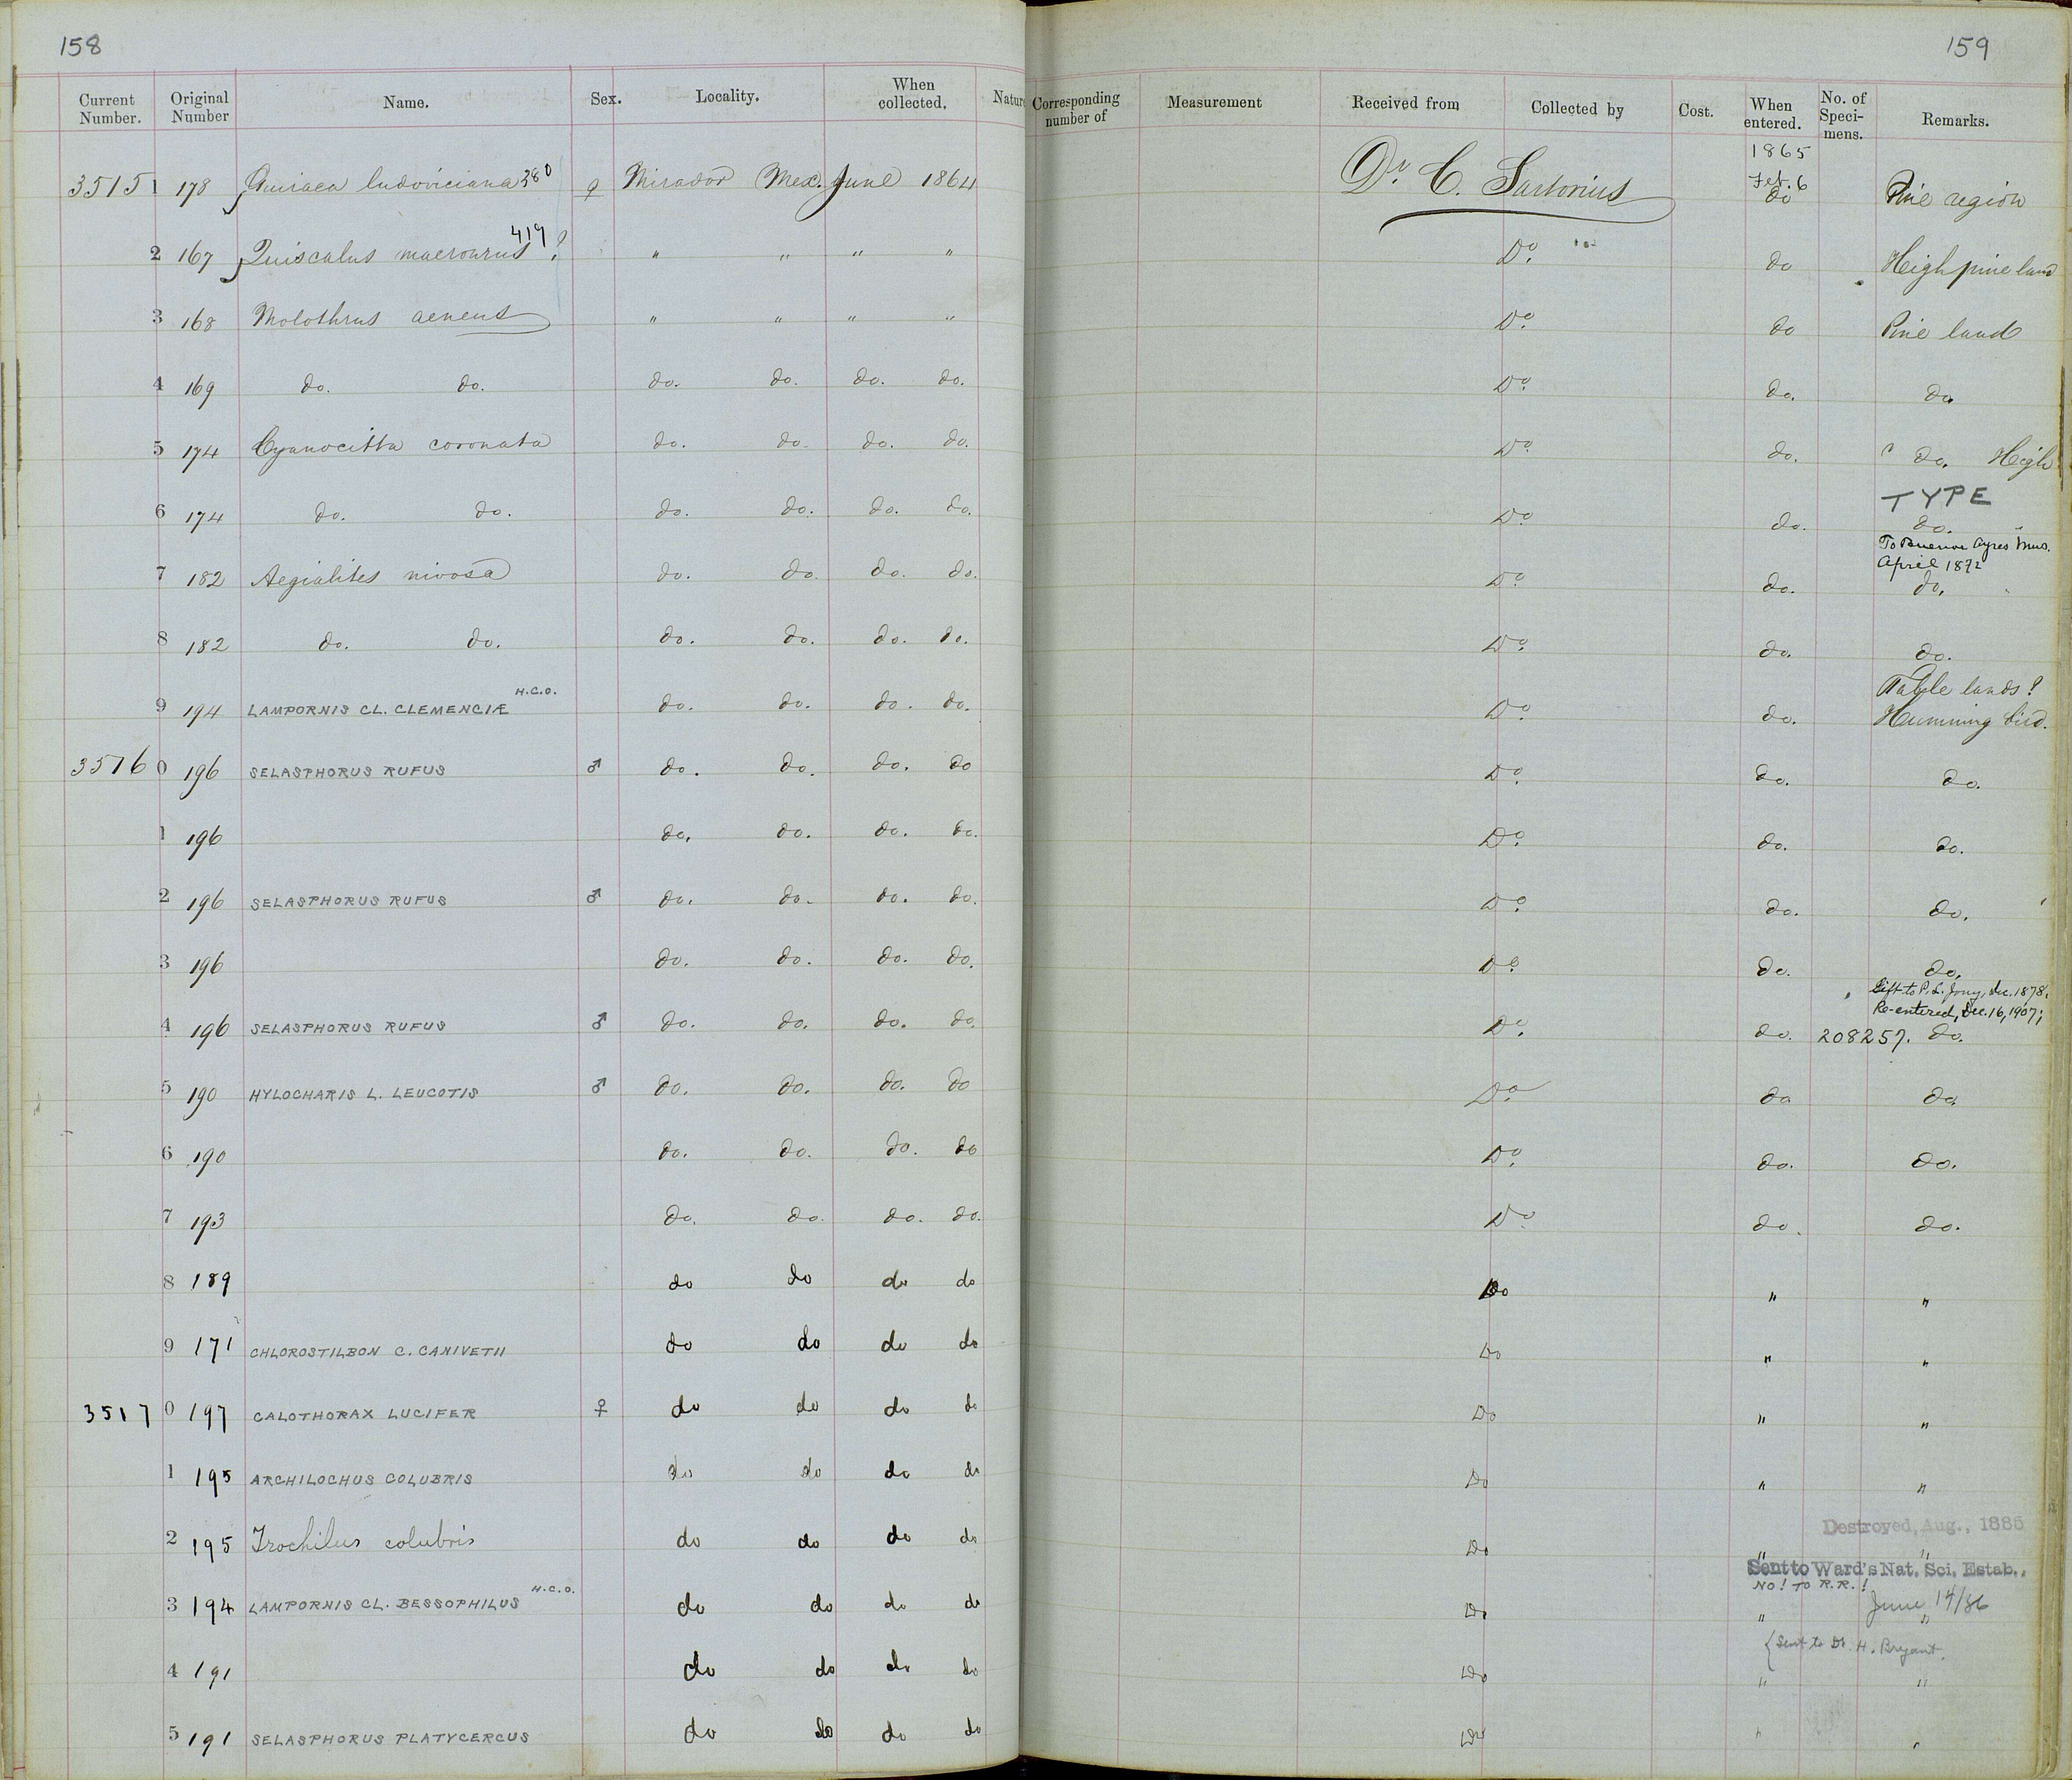 158
159
Current Number. Original Number Name. Sex. Locality. When collected. Nature Corresponding number of Measurement Received from Collected by Cost. When entered. No. of Speci-mens. Remarks.
1865
35151 178 Guiraca ludoviciana 380 ♀ Mirador Mex. June 1864 Dr. C. Sartorius Feb. 6 do Pine region
419
2 167 Quiscalus macrourus ? " " " " Do. do High pine land
3 168 Molothrus aeneus " " " " Do. do Pine land
4 169 do. do. do. do. do. do. Do. do. do.
5 174 Cyanocitta coronata do. do. do. do. Do. do. do. High
TYPE
6 174 do. do. do. do. do. do. Do. do. do.
To Buenos Ayres Mus.
April 1872
7 182 Aegialites nivosa do. do. do. do. Do. do. do.
8 182 do. do. do. do. do. do. Do. do. do.
H.C.O. Table lands?
9 194 LAMPORNIS CL. CLEMENCIÆ do. do. do. do. Do. do. Humming bird.
35160 196 SELASPHORUS RUFUS ♂ do. do. do. do Do. do. do.
1 196 do. do. do. do. Do. do. do.
2 196 SELASPHORUS RUFUS ♂ do. do. do. do. Do. do. do.
3 196 do. do. do. do. Do. do. do.
Gift to P. L. Jouy, Dec. 1878.
Re-entered, Dec. 16, 1907;
4 196 SELASPHORUS RUFUS ♂ do. do. do. do. Do. do. 208257. do.
5 190 HYLOCHARIS L. LEUCOTIS ♂ do. do. do. do Do. do do.
6 190 do. do. do. do Do. do. do.
7 193 do. do. do. do. Do. do. do.
8 189 do do do do Do " "
9 171 CHLOROSTILBON C. CANIVETII do do do do Do " "
35170 197 CALOTHORAX LUCIFER ♀ do do do do Do " "
1 195 ARCHILOCHUS COLUBRIS do do do do Do " "
Destroyed, Aug., 1885
2 195 Trochilus colubris do do do do Do " "
Sent to Ward's Nat. Sci. Estab..
H.C.O. NO! TO R.R.!
3 194 LAMPORNIS CL. BESSOPHILUS do do do do Do " June 14/86 "
{ Sent to Dr. H. Bryant.
4 191 do do do do Do " "
5 191 SELASPHORUS PLATYCERCUS do do do do Do " "